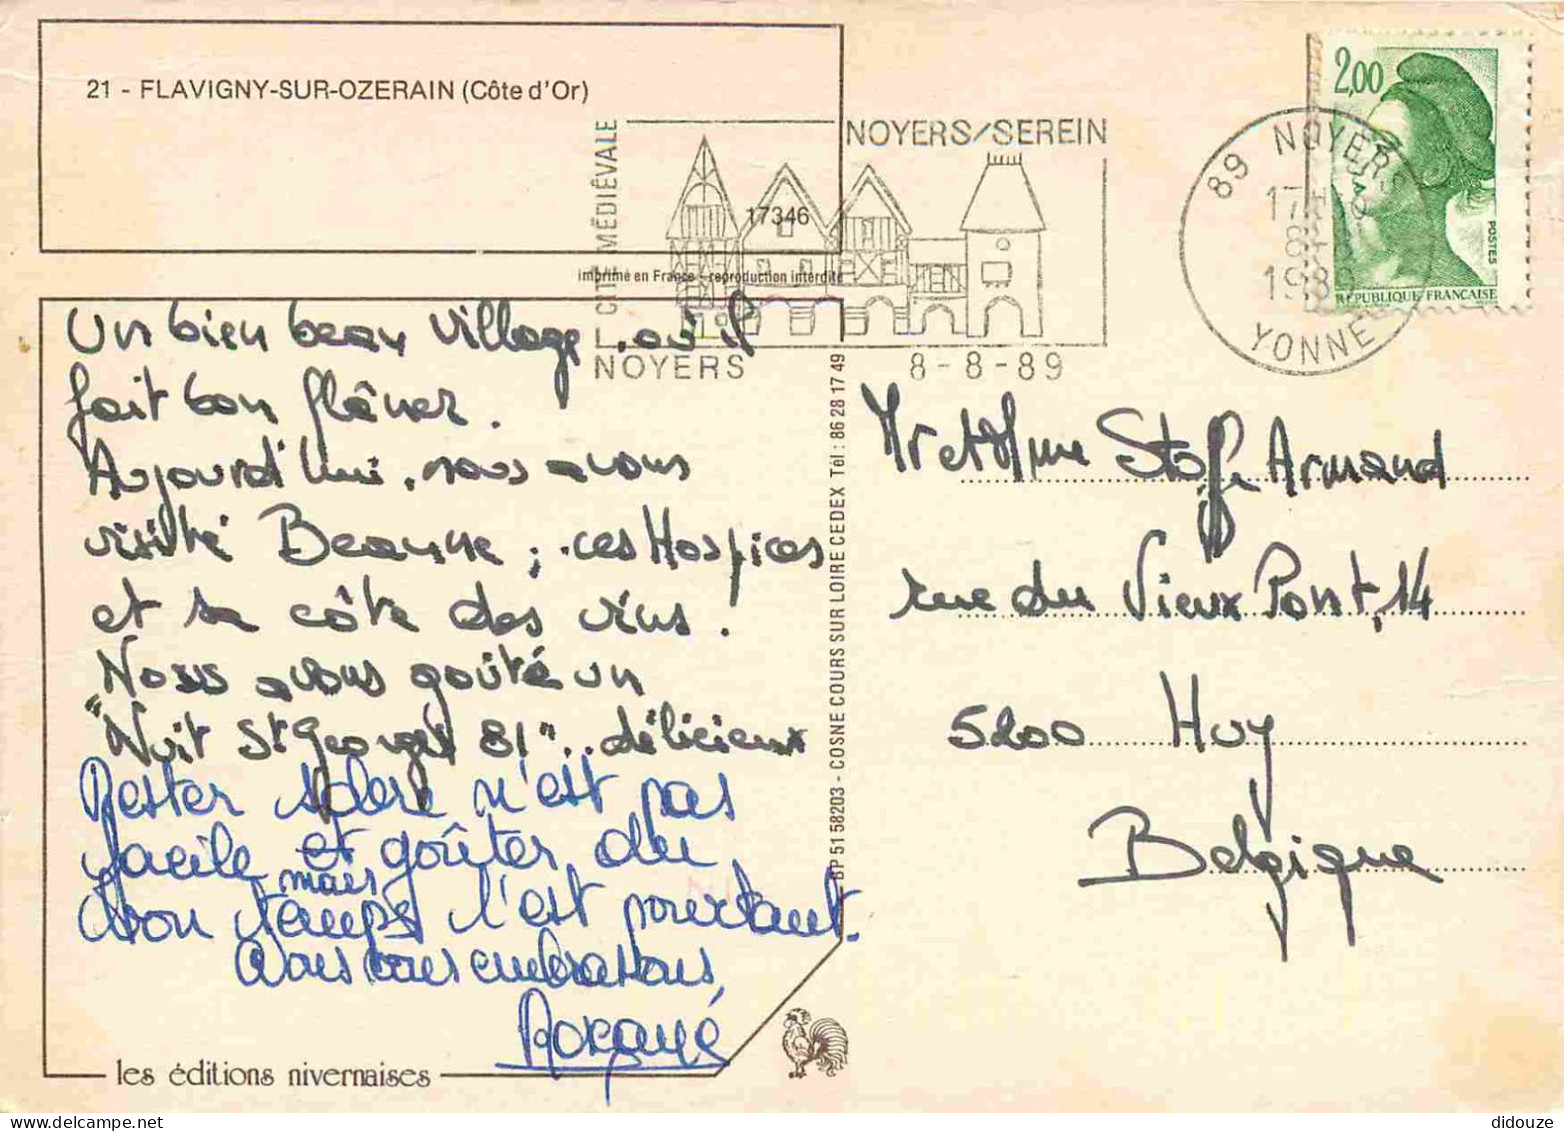 21 - FLAVIGNY-SUR-OZERAIN (Côte d'Or)
17346
imprimé en France - reproduction interdite
CITÉ MÉDIÉVALE
NOYERS/SEREIN
NOYERS
8-8-89
89 NOYERS
17H
8-8
1989
YONNE
2,00
POSTES
RÉPUBLIQUE FRANÇAISE
Un bien beau village, où il
fait bon flâner.
Aujourd'hui, nous avons
visité Beaune ; ces Hospices
et sa côte des vins !
Nous avons goûté un
"Nuit St Georges 81"... délicieux
Rester sobre n'est pas
facile et goûter du
mais
bon temps l'est pourtant.
Nous vous embrassons,
BP 51 58203 - COSNE COURS SUR LOIRE CEDEX Tél : 86 28 17 49
Mr et Mme Armand
rue du Vieux Pont, 14
5200 Huy
Belgique
les éditions nivernaises
didouze